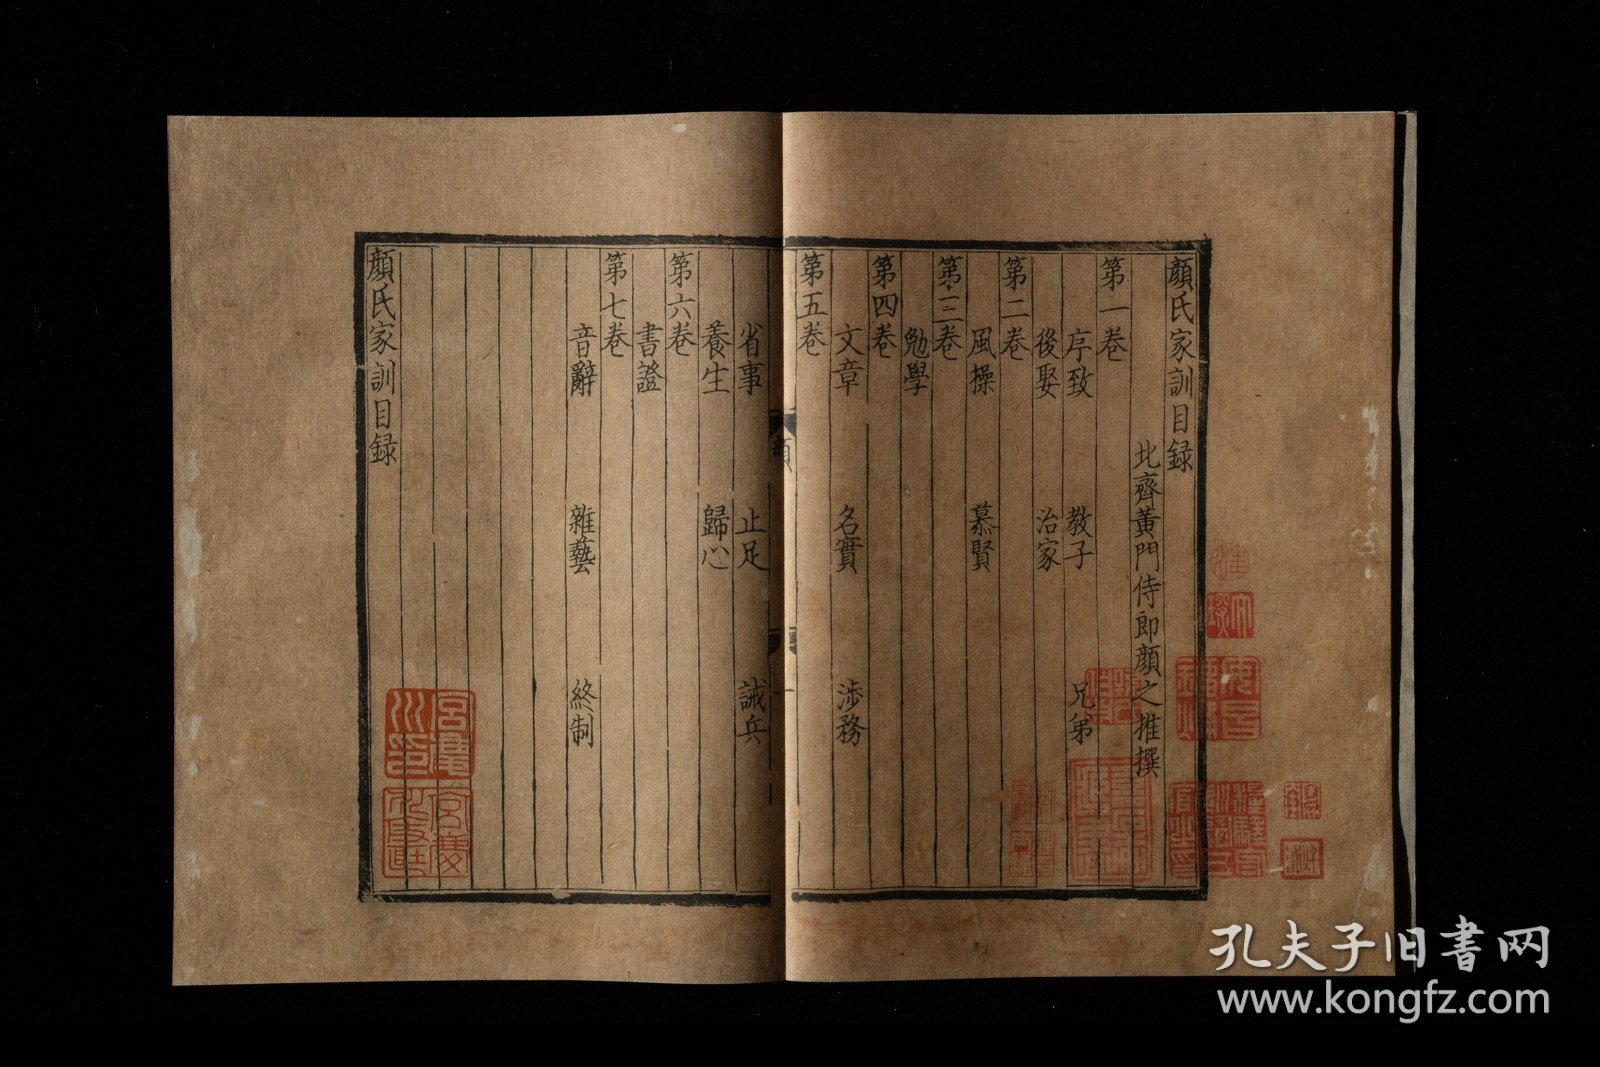 顔氏家訓目録
北齊黃門侍郎顔之推撰
第一卷
序致 教子 兄弟
後娶 治家
第二卷
風操 慕賢
第三卷
勉學
第四卷
文章 名實 涉務
第五卷
顔
一
省事 止足 誡兵
養生 歸心
第六卷
書證
第七卷
音辭 雜藝 終制
顔氏家訓目録
孔夫子旧書网
www.kongfz.com